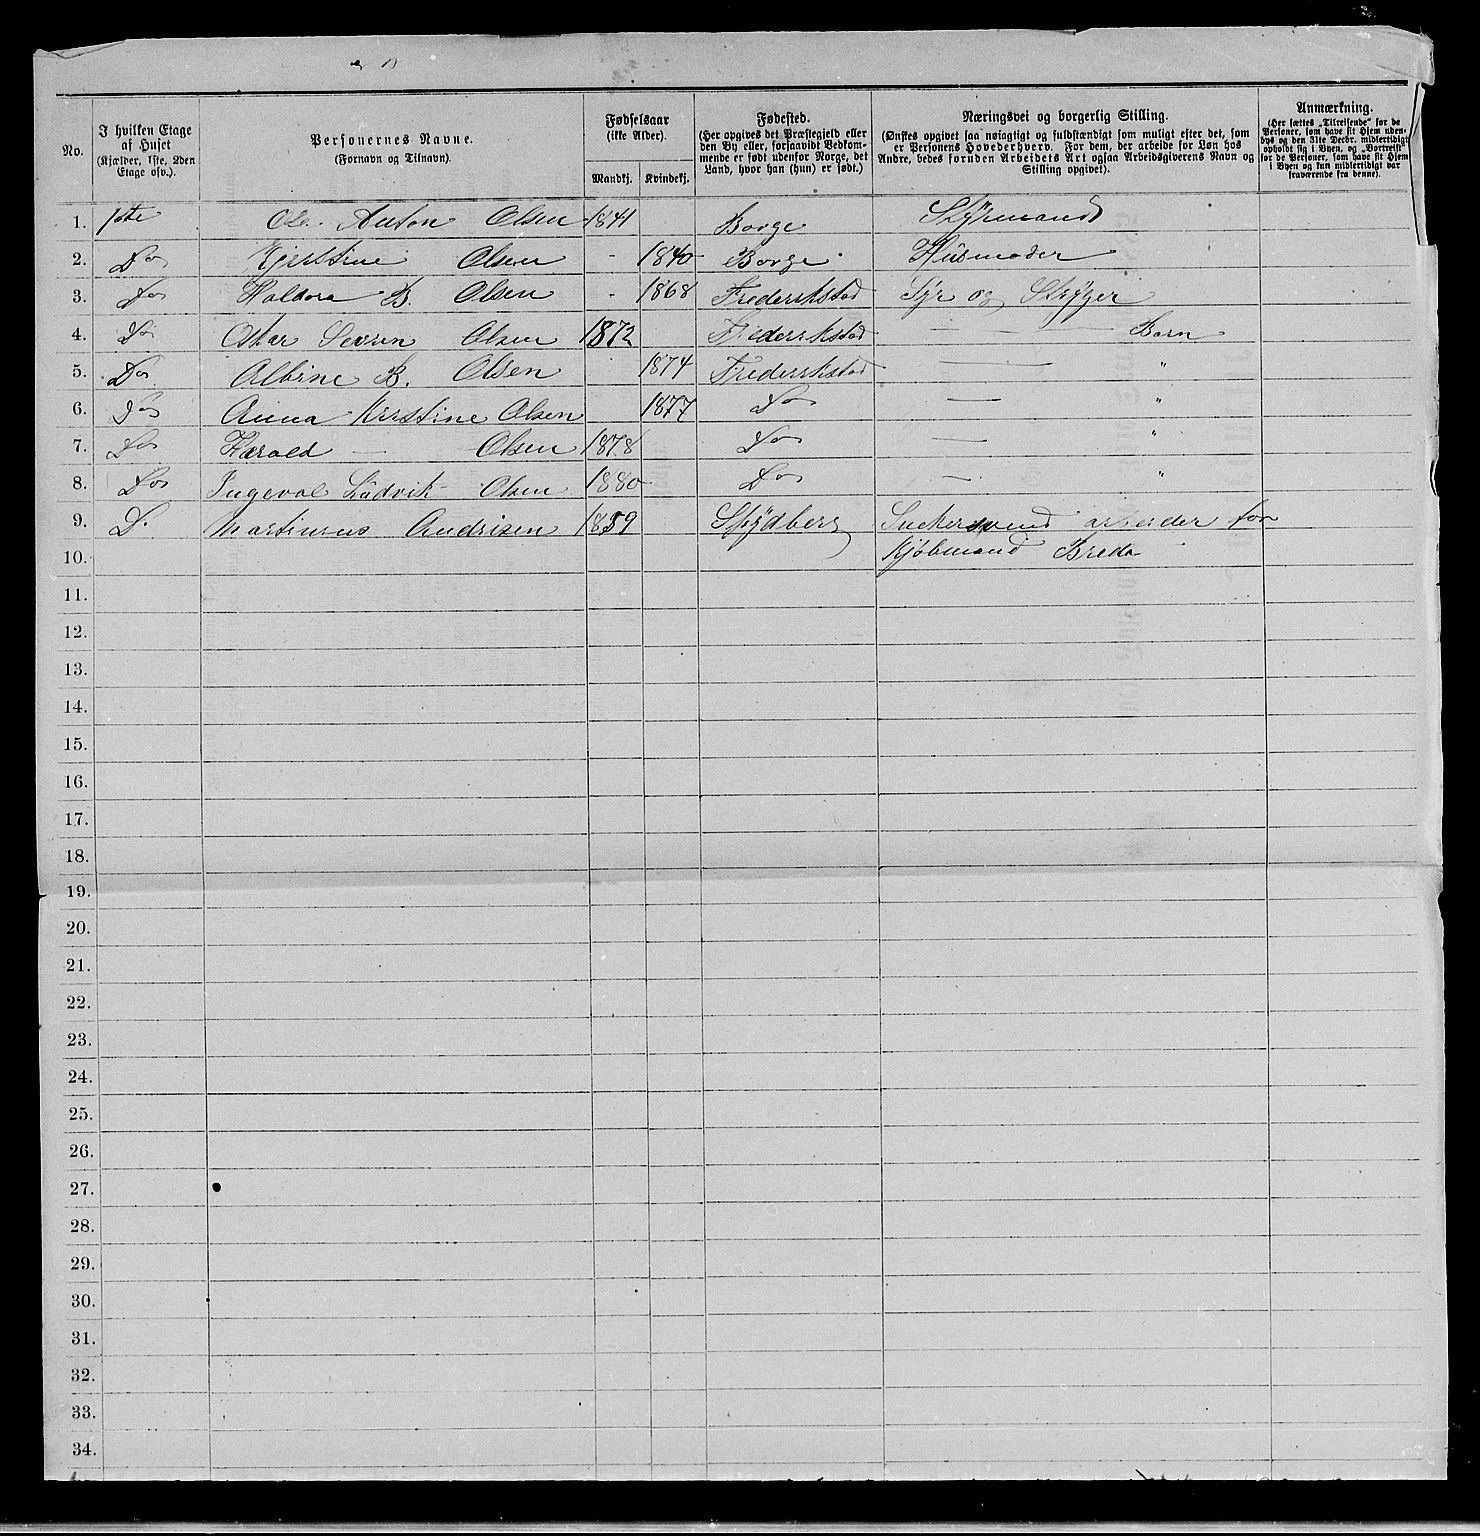 No.
I hvilken Etage af Huset (Kjælder, 1ste, 2den Etage osv.).
Personernes Navne. (Fornavn og Tilnavn).
Fødselsaar (ikke Alder). Mandkj. Kvindekj.
Fødested. (Her opgives det Præstegjeld eller den By eller, forsaavidt Bedkommende er født udenfor Norge, det Land, hvor han (hun) er født.)
Næringsvei og borgerlig Stilling. (Ønskes opgivet saa nøiagtigt og fuldstændigt som muligt efter det, som er Personens Hovederhverv. For dem, der arbeide for Løn hos Andre, bedes foruden Arbeidets Art ogsaa Arbeidsgiverens Navn og Stilling opgivet).
Anmærkning. (Her sættes „Tilreisende" for de Personer, som have sit Hjem udenbys og den 31te Decbr. midlertidigt opholdt sig i Byen, og „Bortreist" for de Personer, som have sit Hjem i Byen og kun midlertidigt var fraværende fra denne).
1. 1ste Ole Anton Olsen 1841 Borge Styrmand
2. Do Kjerstine Olsen - 1840 Borge Husmoder
3. Do Haldora B. Olsen - 1868 Frederikstad Syr og Stryger
4. Do Oskar Sevrin Olsen 1872 Frederikstad — — — Barn
5. Do Albine B. Olsen 1874 Frederikstad — — "
6. Do Anna Kristine Olsen 1877 Do — — "
7. Do Harald — Olsen 1878 Do — "
8. Do Ingeval Ludvik Olsen 1880 Do — "
9. D. Martinius Andrisen 1859 Spydberg arbeider for
10. Kjøbmand Breda
11.
12.
13.
14.
15.
16.
17.
18.
19.
20.
21.
22.
23.
24.
25.
26.
27.
28.
29.
30.
31.
32.
33.
34.